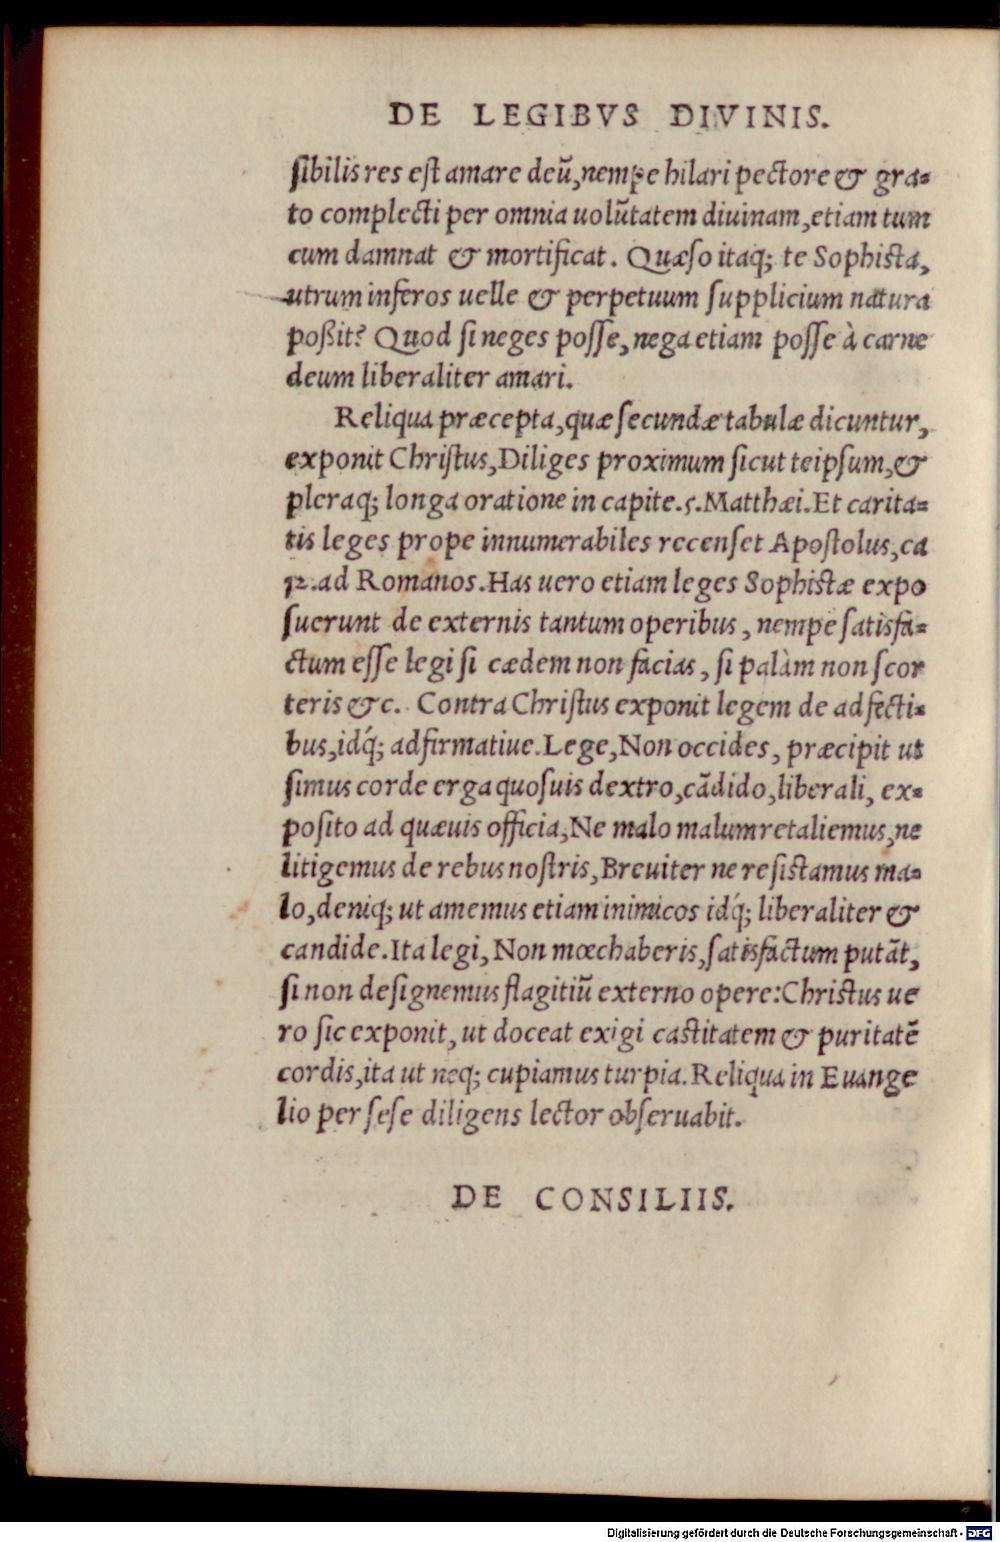 DE LEGIBVS DIVINIS.
ſibilis res eſt amare deũ, nempe hilari pectore & gra-
to complecti per omnia uolũtatem diuinam, etiam tum
cum damnat & mortificat. Quæſo itaq; te Sophiſta,
utrum inferos uelle & perpetuum ſupplicium natura
poßit? Quod ſi neges poſſe, nega etiam poſſe à carne
deum liberaliter amari.
Reliqua præcepta, quæ ſecundæ tabulæ dicuntur,
exponit Chriſtus, Diliges proximum ſicut teipſum, &
pleraq; longa oratione in capite.5.Matthæi. Et carita-
tis leges prope innumerabiles recenſet Apoſtolus, ca
12.ad Romanos. Has uero etiam leges Sophiſtæ expo
ſuerunt de externis tantum operibus, nempe ſatisfa-
ctum eſſe legi ſi cædem non facias, ſi palàm non ſcor
teris &c. Contra Chriſtus exponit legem de adfecti-
bus, idq́; adfirmatiue. Lege, Non occides, præcipit ut
ſimus corde erga quoſuis dextro, cãdido, liberali, ex-
poſito ad quæuis officia, Ne malo malum retaliemus, ne
litigemus de rebus noſtris, Breuiter ne reſiſtamus ma-
lo, deniq; ut amemus etiam inimicos idq́; liberaliter &
candide. Ita legi, Non mœchaberis, ſatisfactum putãt,
ſi non deſignemus flagitiũ externo opere: Chriſtus ue
ro ſic exponit, ut doceat exigi caſtitatem & puritatẽ
cordis, ita ut neq; cupiamus turpia. Reliqua in Euange
lio per ſeſe diligens lector obſeruabit.
DE CONSILIIS.
Digitalisierung gefördert durch die Deutsche Forschungsgemeinschaft - DFG